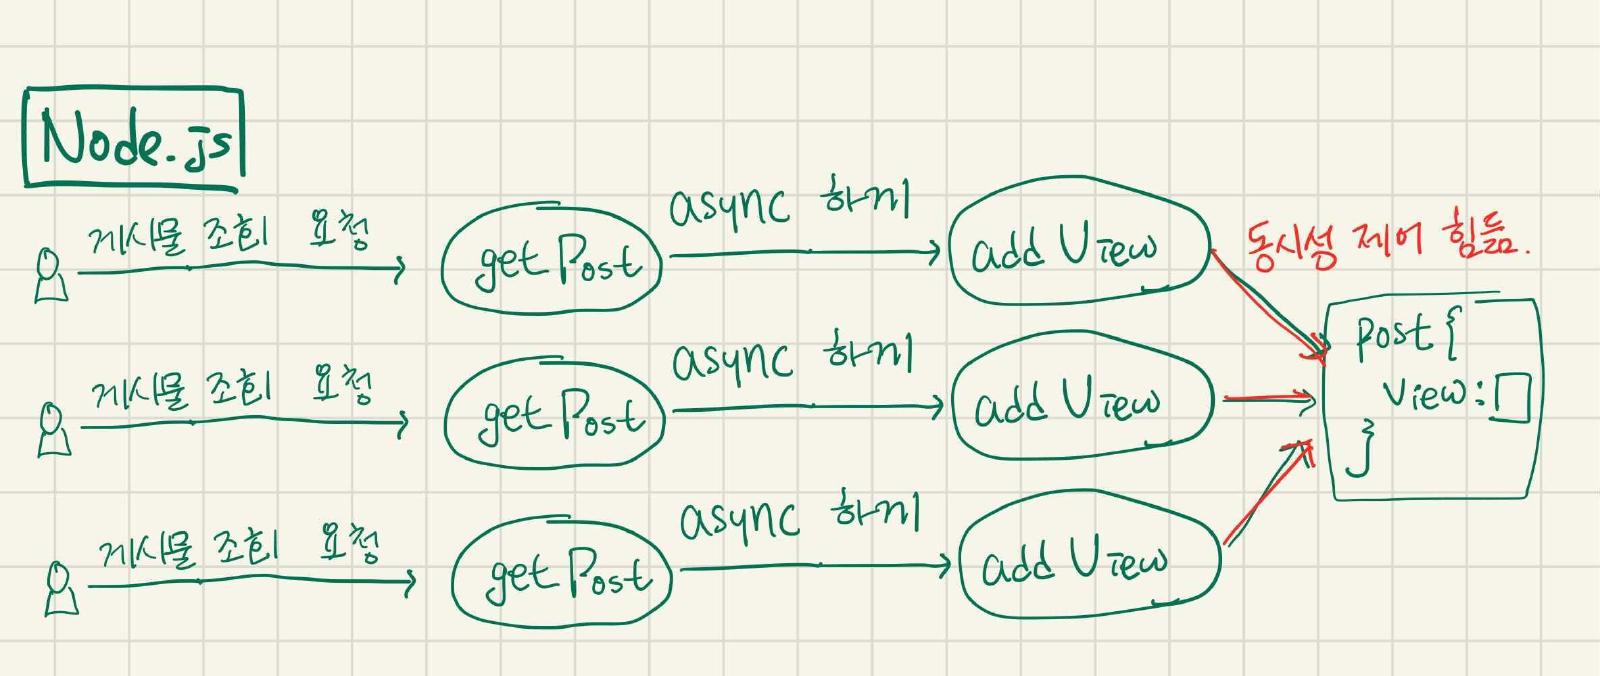 Node.js
게시물 조회 요청
getPost
async 하게
addView
동시성 제어 힘듦.
게시물 조회 요청
getPost
async 하게
addView
post {
view:
}
게시물 조회 요청
getPost
async 하게
addView